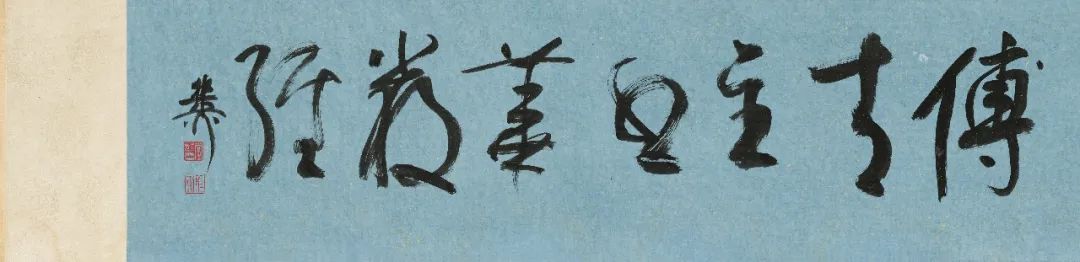 傅青主書華嚴經